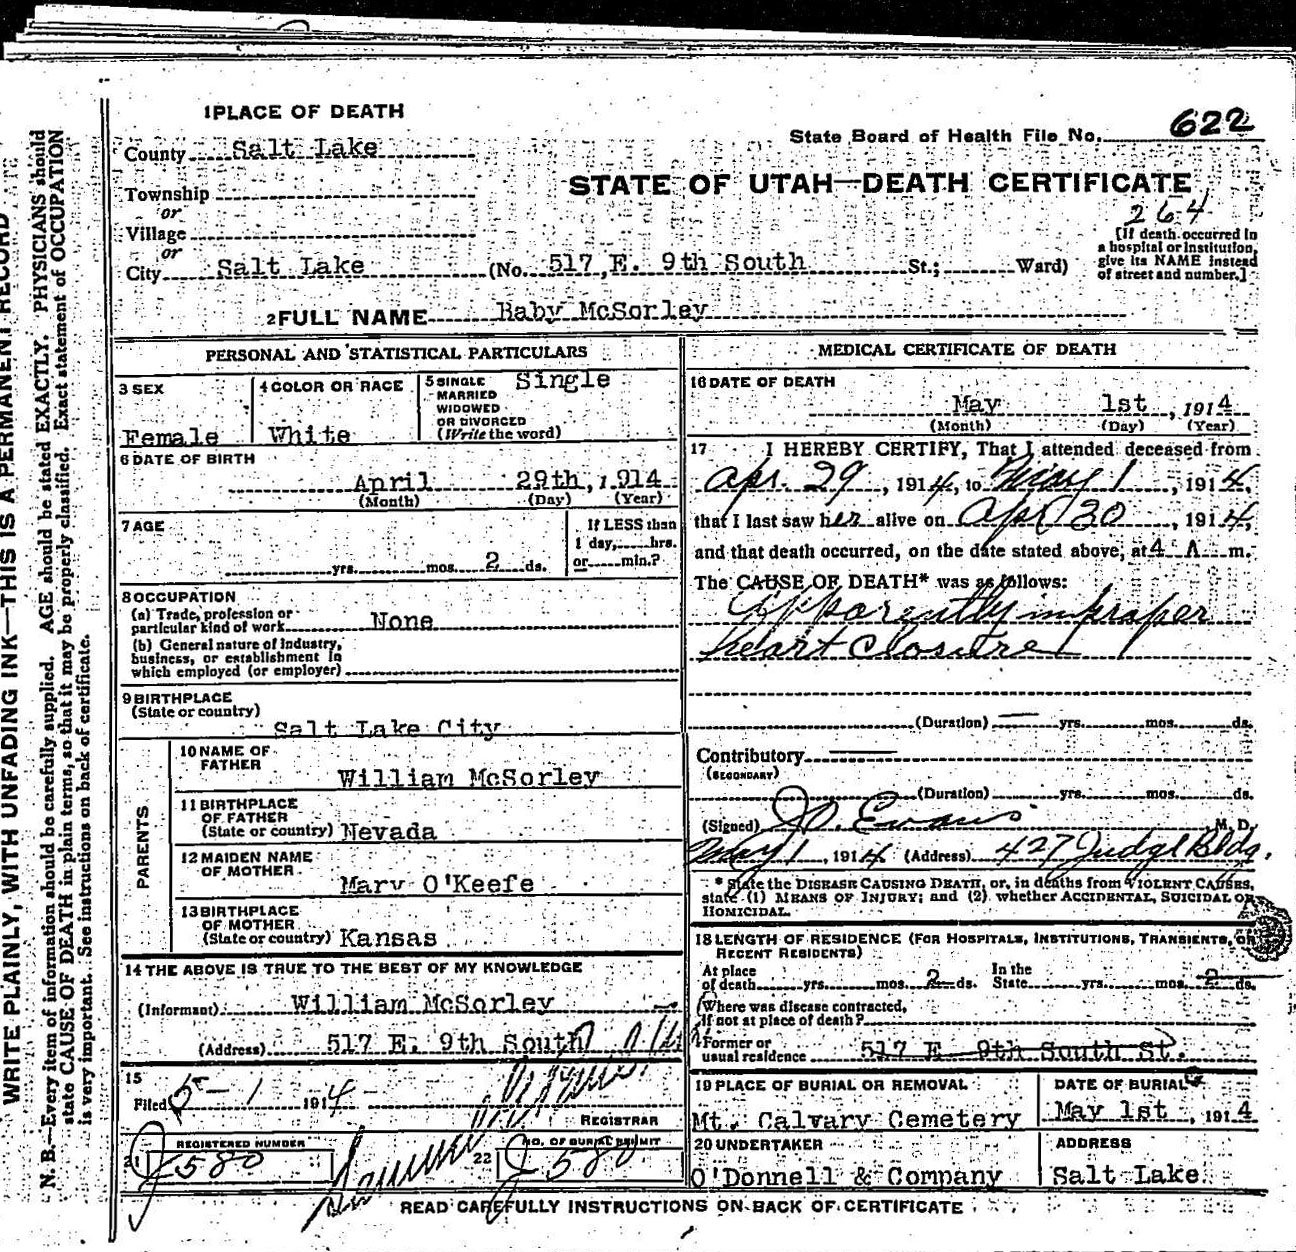 1 PLACE OF DEATH
County Salt Lake
Township
or
Village
or
City Salt Lake (No. 517 E. 9th South St.; Ward)
State Board of Health File No. 622
STATE OF UTAH—DEATH CERTIFICATE
264
[If death occurred in
a hospital or institution,
give its NAME instead
of street and number.]
2 FULL NAME Baby McSorley
PERSONAL AND STATISTICAL PARTICULARS
3 SEX
Female
4 COLOR OR RACE
White
5 SINGLE
MARRIED
WIDOWED
OR DIVORCED
(Write the word)
Single
6 DATE OF BIRTH
April 29th, 1914
(Month) (Day) (Year)
7 AGE
yrs. mos. 2 ds.
If LESS than
1 day, hrs.
or min.?
8 OCCUPATION
(a) Trade, profession or
particular kind of work None
(b) General nature of industry,
business, or establishment in
which employed (or employer)
9 BIRTHPLACE
(State or country)
Salt Lake City
PARENTS
10 NAME OF
FATHER
William McSorley
11 BIRTHPLACE
OF FATHER
(State or country) Nevada
12 MAIDEN NAME
OF MOTHER
Mary O'Keefe
13 BIRTHPLACE
OF MOTHER
(State or country) Kansas
14 THE ABOVE IS TRUE TO THE BEST OF MY KNOWLEDGE
(Informant) William McSorley
(Address) 517 E. 9th South
15
Filed 5-1 1914
REGISTRAR
21 REGISTERED NUMBER
J580
22 NO. OF BURIAL PERMIT
J 580
MEDICAL CERTIFICATE OF DEATH
16 DATE OF DEATH
May 1st, 1914
(Month) (Day) (Year)
17 I HEREBY CERTIFY, That I attended deceased from
Apr. 29, 1914, to May 1, 1914,
that I last saw her alive on Apr 30, 1914,
and that death occurred, on the date stated above, at 4 A m.
The CAUSE OF DEATH* was as follows:
Apparently improper
heart closure
(Duration) — yrs. mos. ds.
Contributory
(SECONDARY)
(Duration) yrs. mos. ds.
(Signed) Evans M. D.
May 1, 1914 (Address) 427 Judge Bldg.
* State the DISEASE CAUSING DEATH, or, in deaths from VIOLENT CAUSES,
state (1) MEANS OF INJURY; and (2) whether ACCIDENTAL, SUICIDAL OR
HOMICIDAL.
18 LENGTH OF RESIDENCE (FOR HOSPITALS, INSTITUTIONS, TRANSIENTS, OR
RECENT RESIDENTS)
At place
of death yrs. mos. 2 ds.
In the
State yrs. mos. 2 ds.
Where was disease contracted,
if not at place of death?
Former or
usual residence 517 E 9th South St.
19 PLACE OF BURIAL OR REMOVAL
Mt. Calvary Cemetery
DATE OF BURIAL
May 1st, 1914
20 UNDERTAKER
O'Donnell & Company
ADDRESS
Salt Lake
READ CAREFULLY INSTRUCTIONS ON BACK OF CERTIFICATE
WRITE PLAINLY, WITH UNFADING INK—THIS IS A PERMANENT RECORD
N. B.—Every item of information should be carefully supplied. AGE should be stated EXACTLY. PHYSICIANS should
state CAUSE OF DEATH in plain terms, so that it may be properly classified. Exact statement of OCCUPATION
is very important. See instructions on back of certificate.